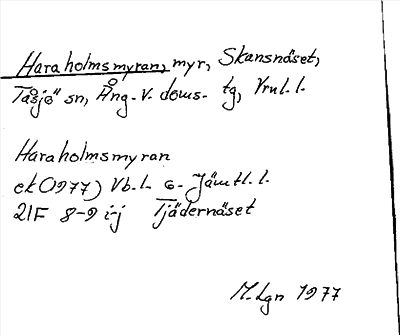 Haraholmsmyran, myr, Skansnäset,
Tåsjö sn, Ång. v. doms. tg, Vrnl. l.
Haraholmsmyran
ek (1977) Vb. l. o. Jämtl. l.
21F 8-9 i-j Tjädernäset
M. Lgn 1977